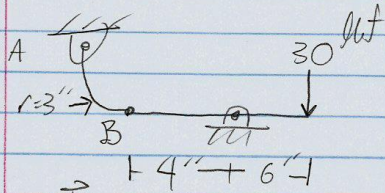 A
30 lbf
r=3"
B
4" 6"